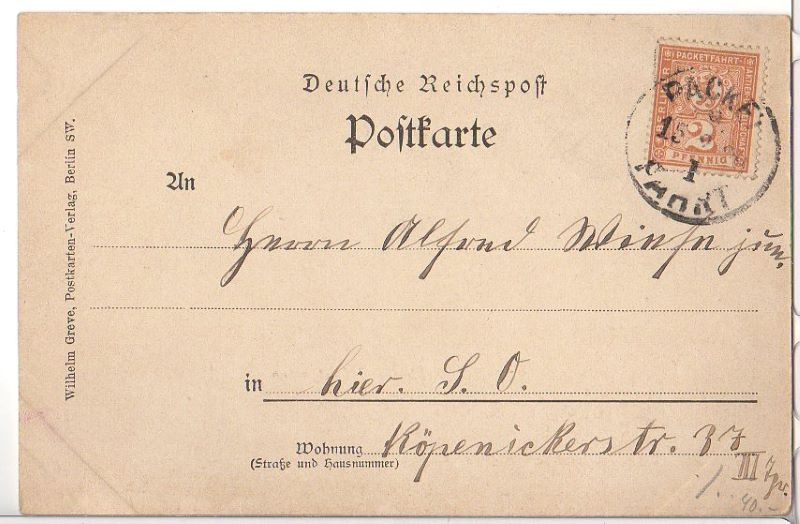 Deutsche Reichspost
Postkarte
PACKETFAHRT-
2
PFENNIG
PACKE
15
1
FAHRT
An
Herrn Alfred jun.
in hier. S. O.
Wohnung Köpenickerstr. 37
(Straße und Hausnummer)
III
40.-
Wilhelm Greve, Postkarten-Verlag, Berlin SW.